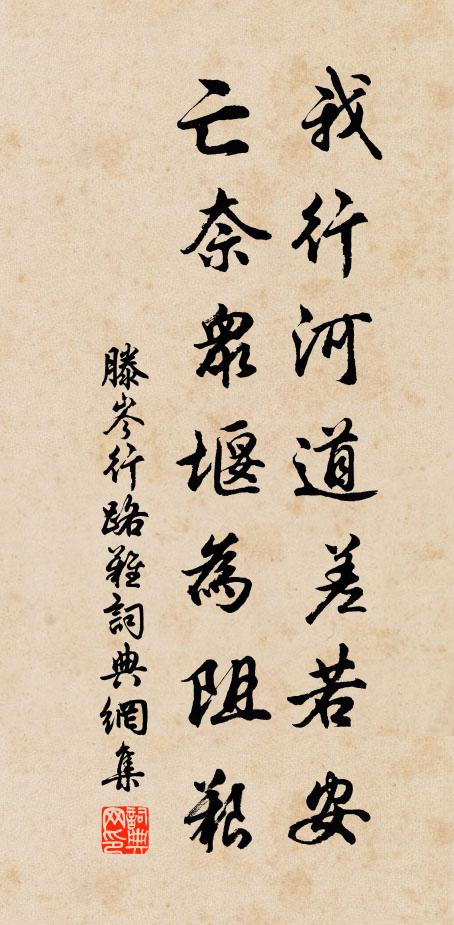 我行河道差若安
亡奈衆堰為阻艱
滕岑行路難詞典網集
詞典网印